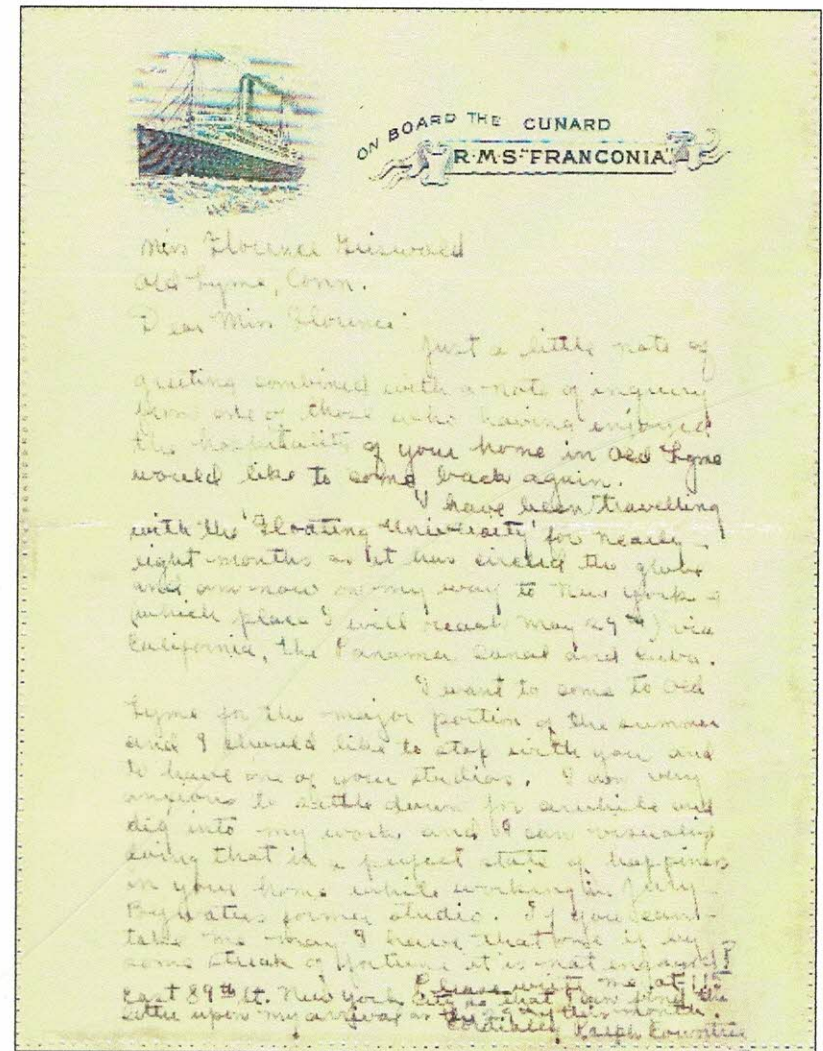 ON BOARD THE CUNARD
R·M·S·"FRANCONIA"
Miss Florence Griswold
Old Lyme, Conn.
Dear Miss Florence:
Just a little note of
greeting combined with a note of inquiry
from one of those who having enjoyed
the hospitality of your home in Old Lyme
would like to come back again.
I have been travelling
with the 'Floating University' for nearly
eight months as it has circled the globe
and am now on my way to New York
(which place I will reach May 29th) via
California, the Panama Canal and Cuba.
I want to come to Old
Lyme for the major portion of the summer
and I should like to stop with you and
to have one of your studios. I am very
anxious to settle down for awhile and
dig into my work and I can visualize
doing that in a perfect state of happiness
in your home while working in
Bywaters former studio. If you can
take me may I have that one if by
some streak of fortune it is not engaged?
Please write me at
East 89th St. New York City so that I can find the
letter upon my arrival on the 29th of this month.
Cordially, Ralph Rowntree